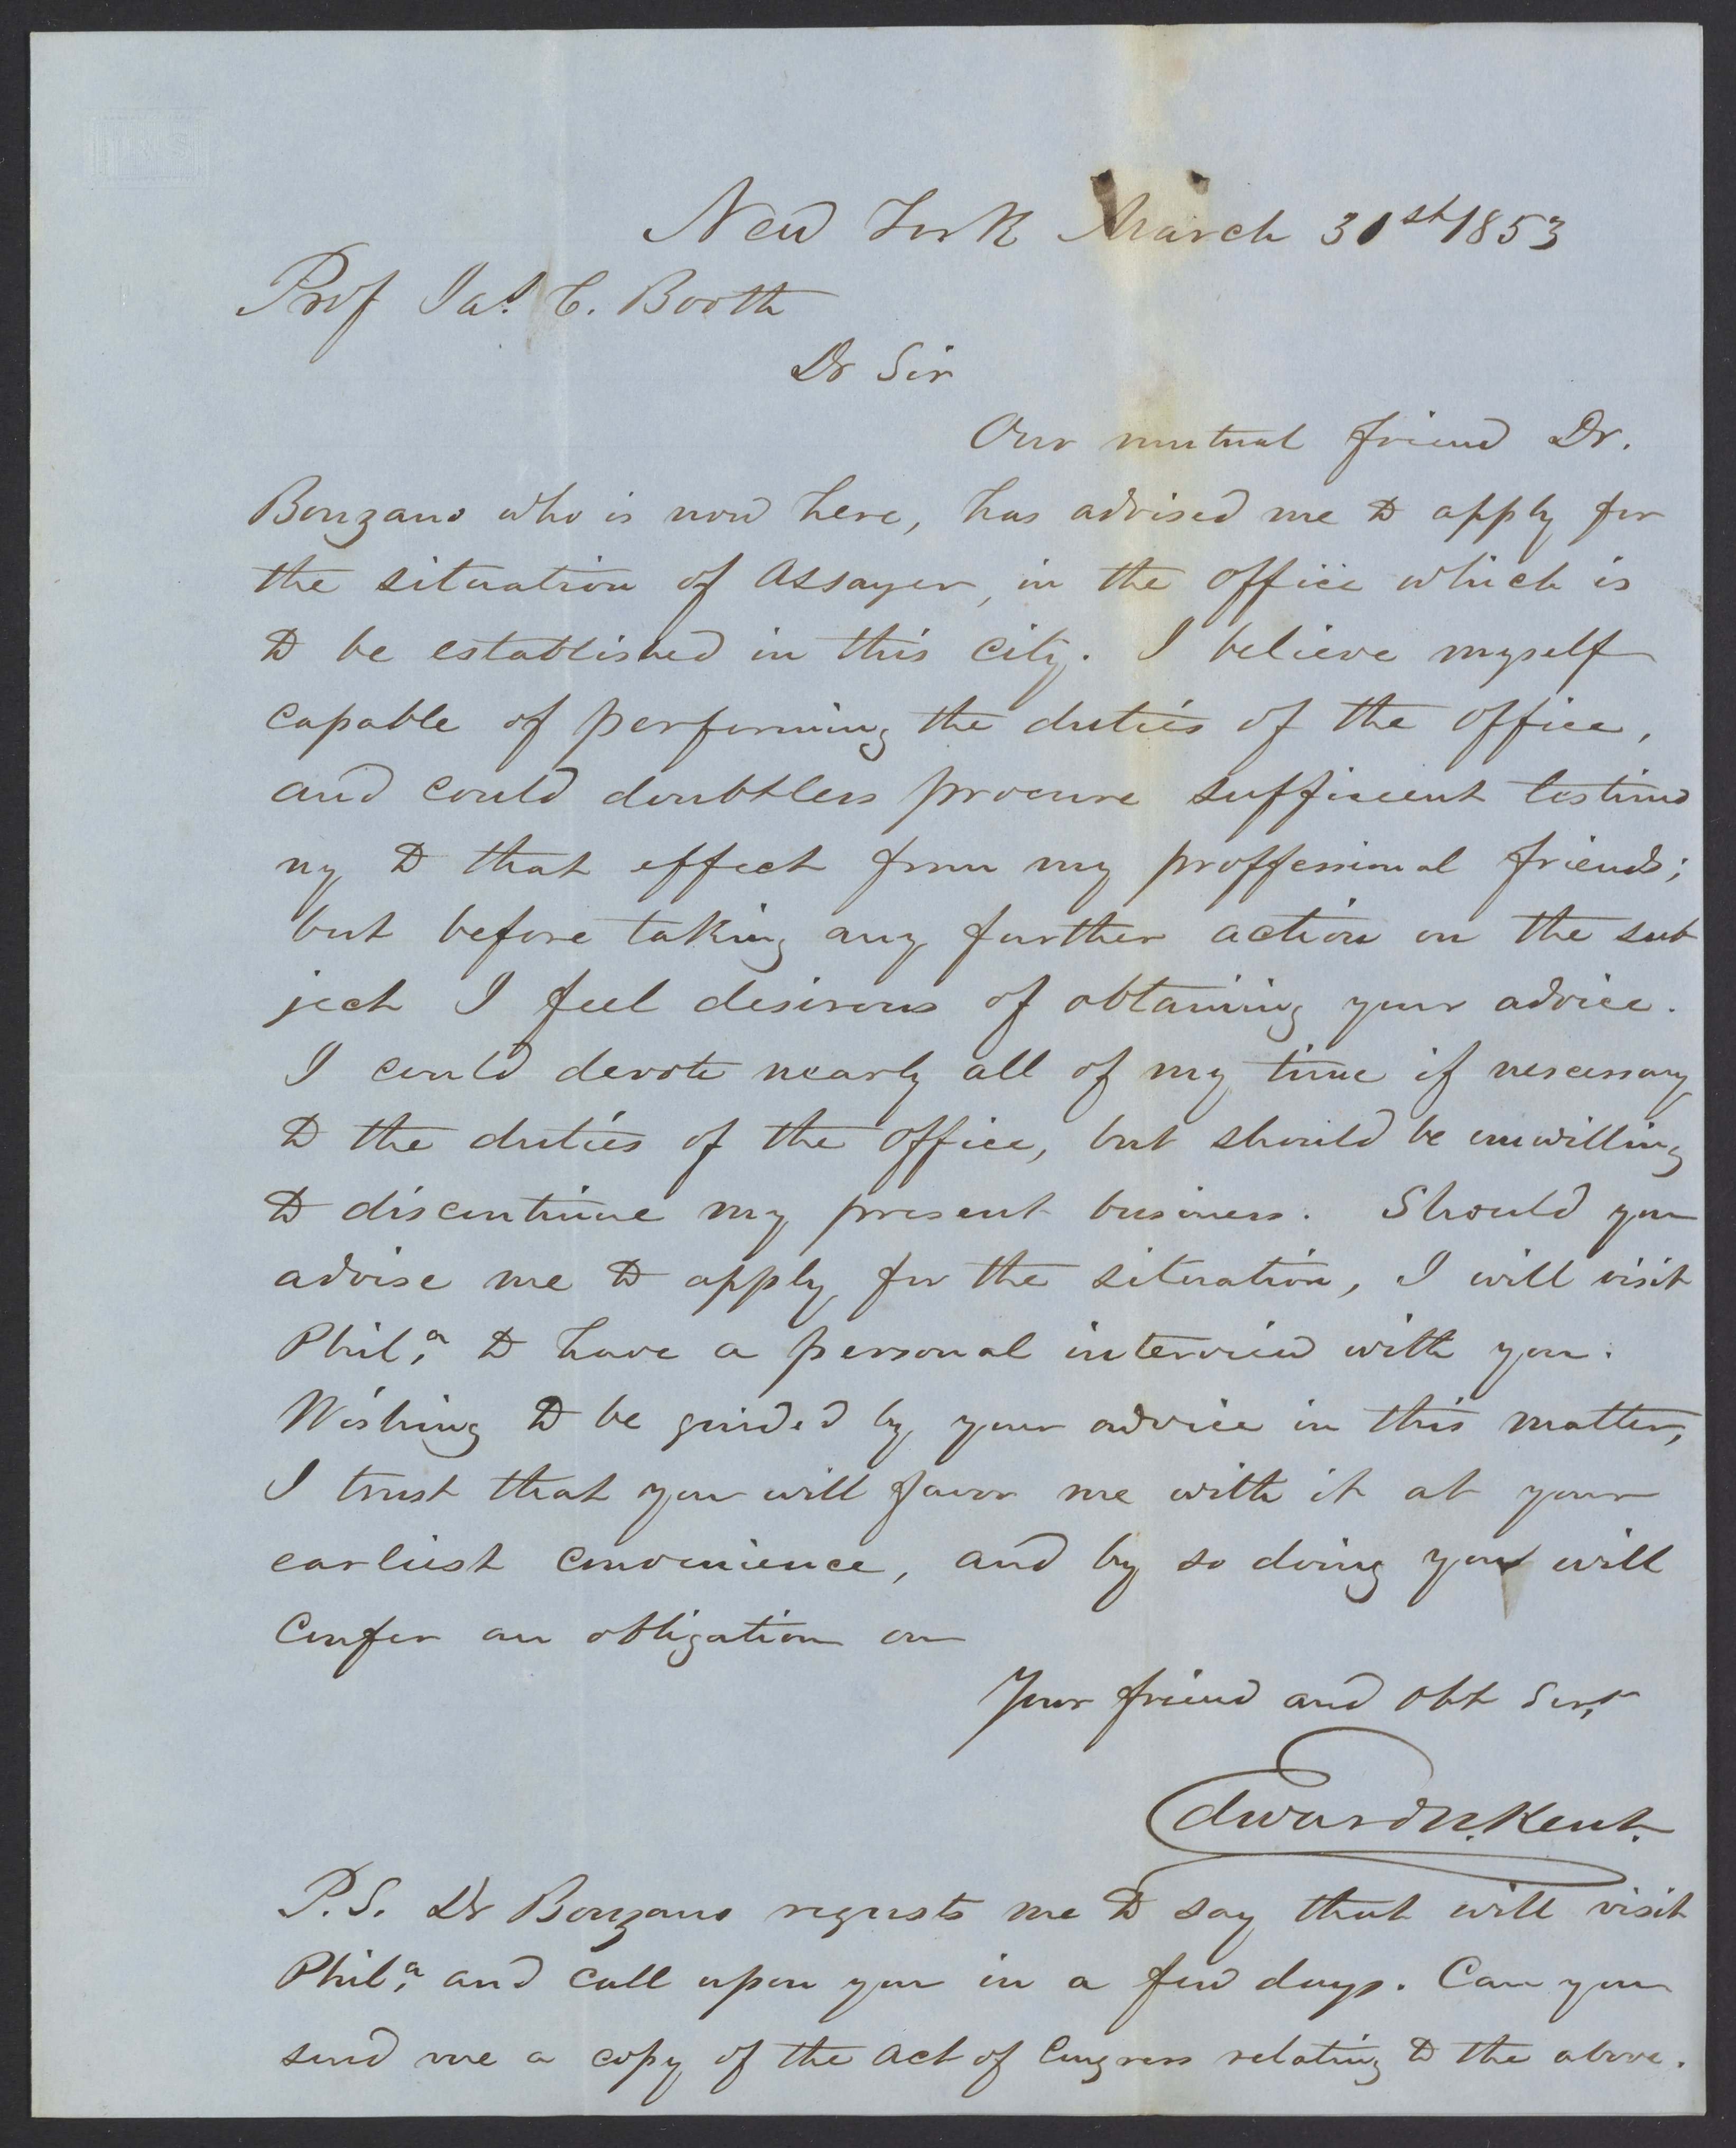 New York March 31st 1853
Prof Jas. C. Booth
Dr Sir
Our mutual friend Dr.
Bonzano who is now here, has advised me to apply for
the situation of Assayer, in the office which is
to be established in this city. I believe myself
capable of performing the duties of the office,
and could doubtless procure suffiscent testimo
ny to that effect from my proffessional friends;
but before taking any further action on the sub
ject I feel desirous of obtaining your advice.
I could devote nearly all of my time if nescessary
to the duties of the office, but should be unwilling
to discontinue my present business. Should you
advise me to apply for the situation, I will visit
Phila. to have a personal interview with you.
Wishing to be guided by your advice in this matter,
I trust that you will favor me with it at your
earliest convenience, and by so doing you will
confer an obligation on
Your friend and Obt Servt
Edward N. Kent.
P.S. Dr Bonzano requests me to say that will visit
Phila. and call upon you in a few days. Can you
send me a copy of the Act of Congress relating to the above.